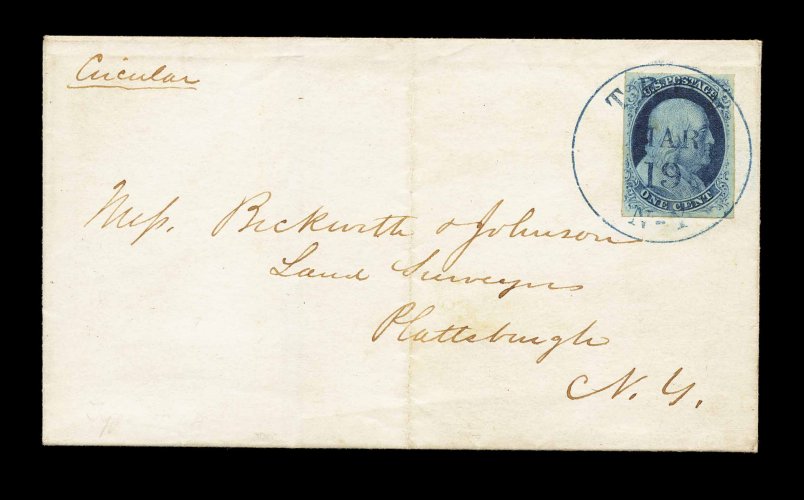 Circular
U.S. POSTAGE
MAR
19
N.Y
ONE CENT
Mess. Beckwith & Johnson
Land Surveyors
Plattsburgh
N. Y.